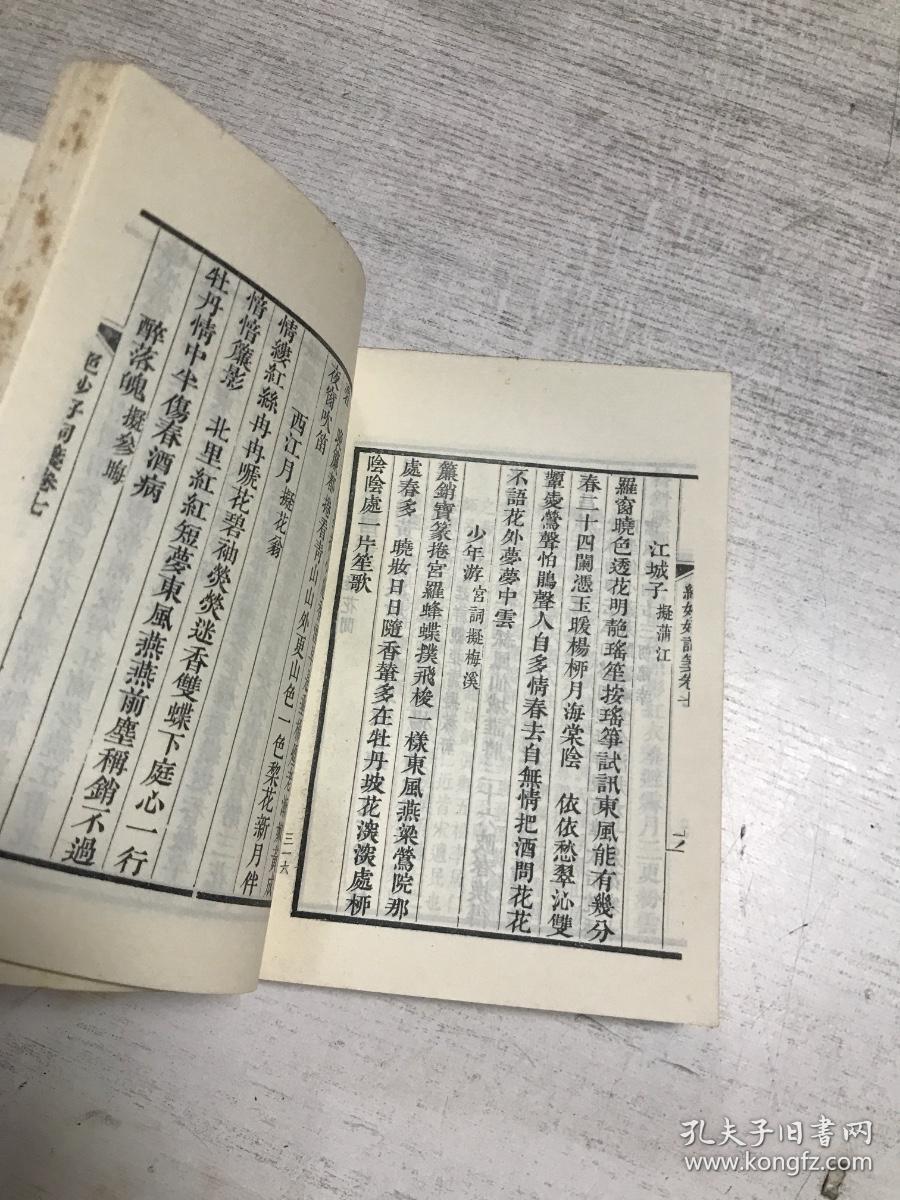 江城子 擬蒲江
羅窗曉色透花明靘瑤笙按瑤箏試訊東風能有幾分
春二十四闌憑玉暖楊柳月海棠陰 依依愁翠沁雙
顰燕鶯聲怕鵑聲人自多情春去自無情把酒問花花
不語花外夢夢中雲
少年游 宮詞擬梅溪
簾銷寶篆捲宮羅蜂蝶撲飛梭一樣東風燕梁鶯院那
處春多 曉妝日日隨香輦多在牡丹坡花淡淡處柳
陰陰處一片笙歌
夜窗吹笛
看青山山外更山色一色棃花新月伴
三一六
西江月 擬花翁
情縷紅絲冉冉嗁花碧袖熒熒迷香雙蝶下庭心一行
愔愔簾影 北里紅紅短夢東風燕燕前塵稱銷不過
牡丹情中半傷春酒病
醉落魄 擬參晦
卷七
孔夫子旧书网
www.kongfz.com